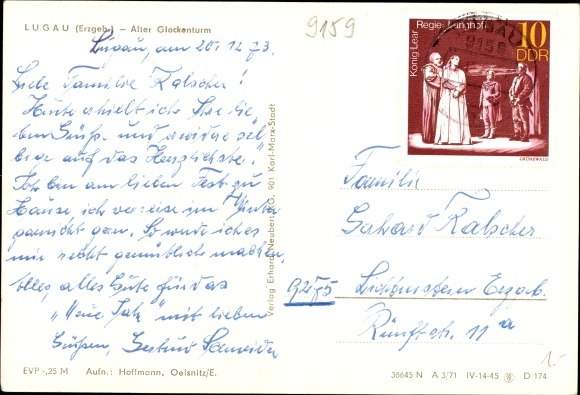 LUGAU (Erzgeb.) – Alter Glockenturm
Lugau, am 20.12.73.
Liebe Familie Kalscher!
Heute erhielt ich Ihre lie-
ben Grüße und erwidere sel-
bige auf das Herzlichste.
Ich bin am lieben Fest zu
Hause, ich verreise im Winter
garnicht gern. So werde ich es
mir recht gemütlich machen.
Alles, alles Gute für das
"Neue Jahr" mit lieben
Grüßen, Gertrud Schneider
EVP -,25 M Aufn.: Hoffmann, Oelsnitz/E.
Verlag Erhard Neubert KG, 901 Karl-Marx-Stadt
9159
König Lear Regie: Langhoff
10
DDR
GRÜNEWALD
9159
Familie
Gerhard Kalscher
9275 Lichtenstein Erzgeb.
11a
36645 N A 3/71 IV-14-45 D 174
1.-